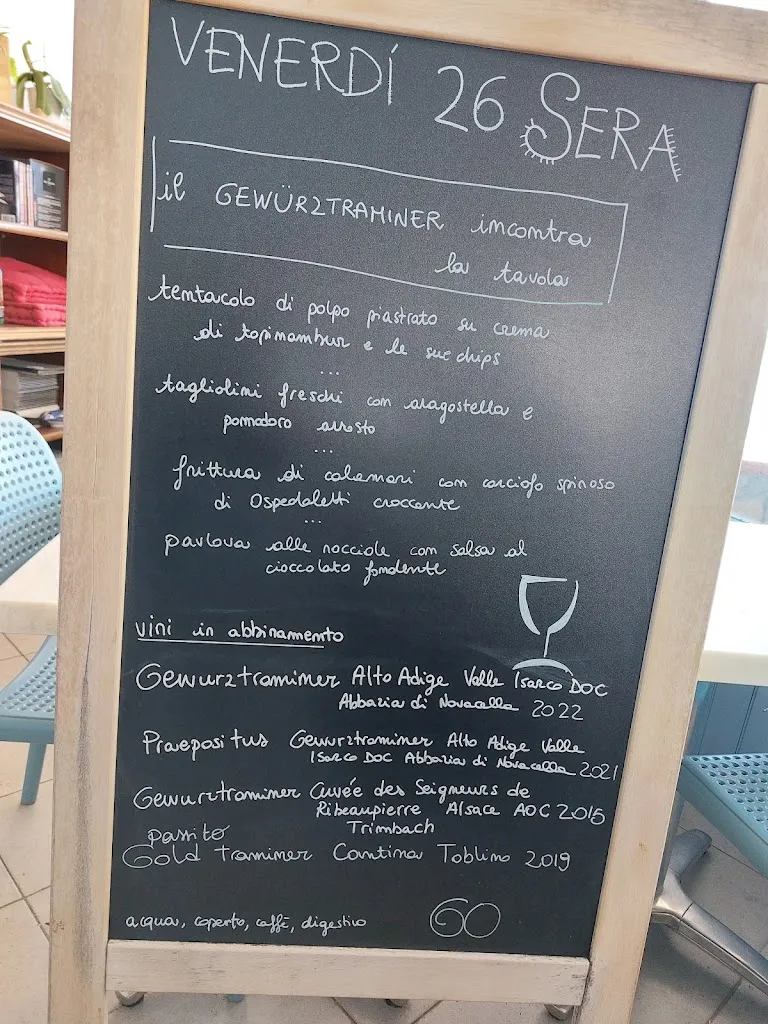 VENERDÍ 26 SERA
il GEWÜRZTRAMINER incontra
la tavola
tentacolo di polpo piastrato su crema
di topinambur e le sue chips
...
tagliolini freschi con aragostella e
pomodoro arrosto
...
frittura di calamari con carciofo spinoso
di Ospedaletti croccante
...
pavlova alle nocciole con salsa al
cioccolato fondente
vini in abbinamento
Gewurztraminer Alto Adige Valle Isarco DOC
Abbazia di Novacella 2022
Praepositus Gewurztraminer Alto Adige Valle
Isarco DOC Abbazia di Novacella 2021
Gewurztraminer Cuvée des Seigneurs de
Ribeaupierre Alsace AOC 2015
Trimbach
passito
Gold Traminer Cantina Toblino 2019
acqua, coperto, caffè, digestivo 60